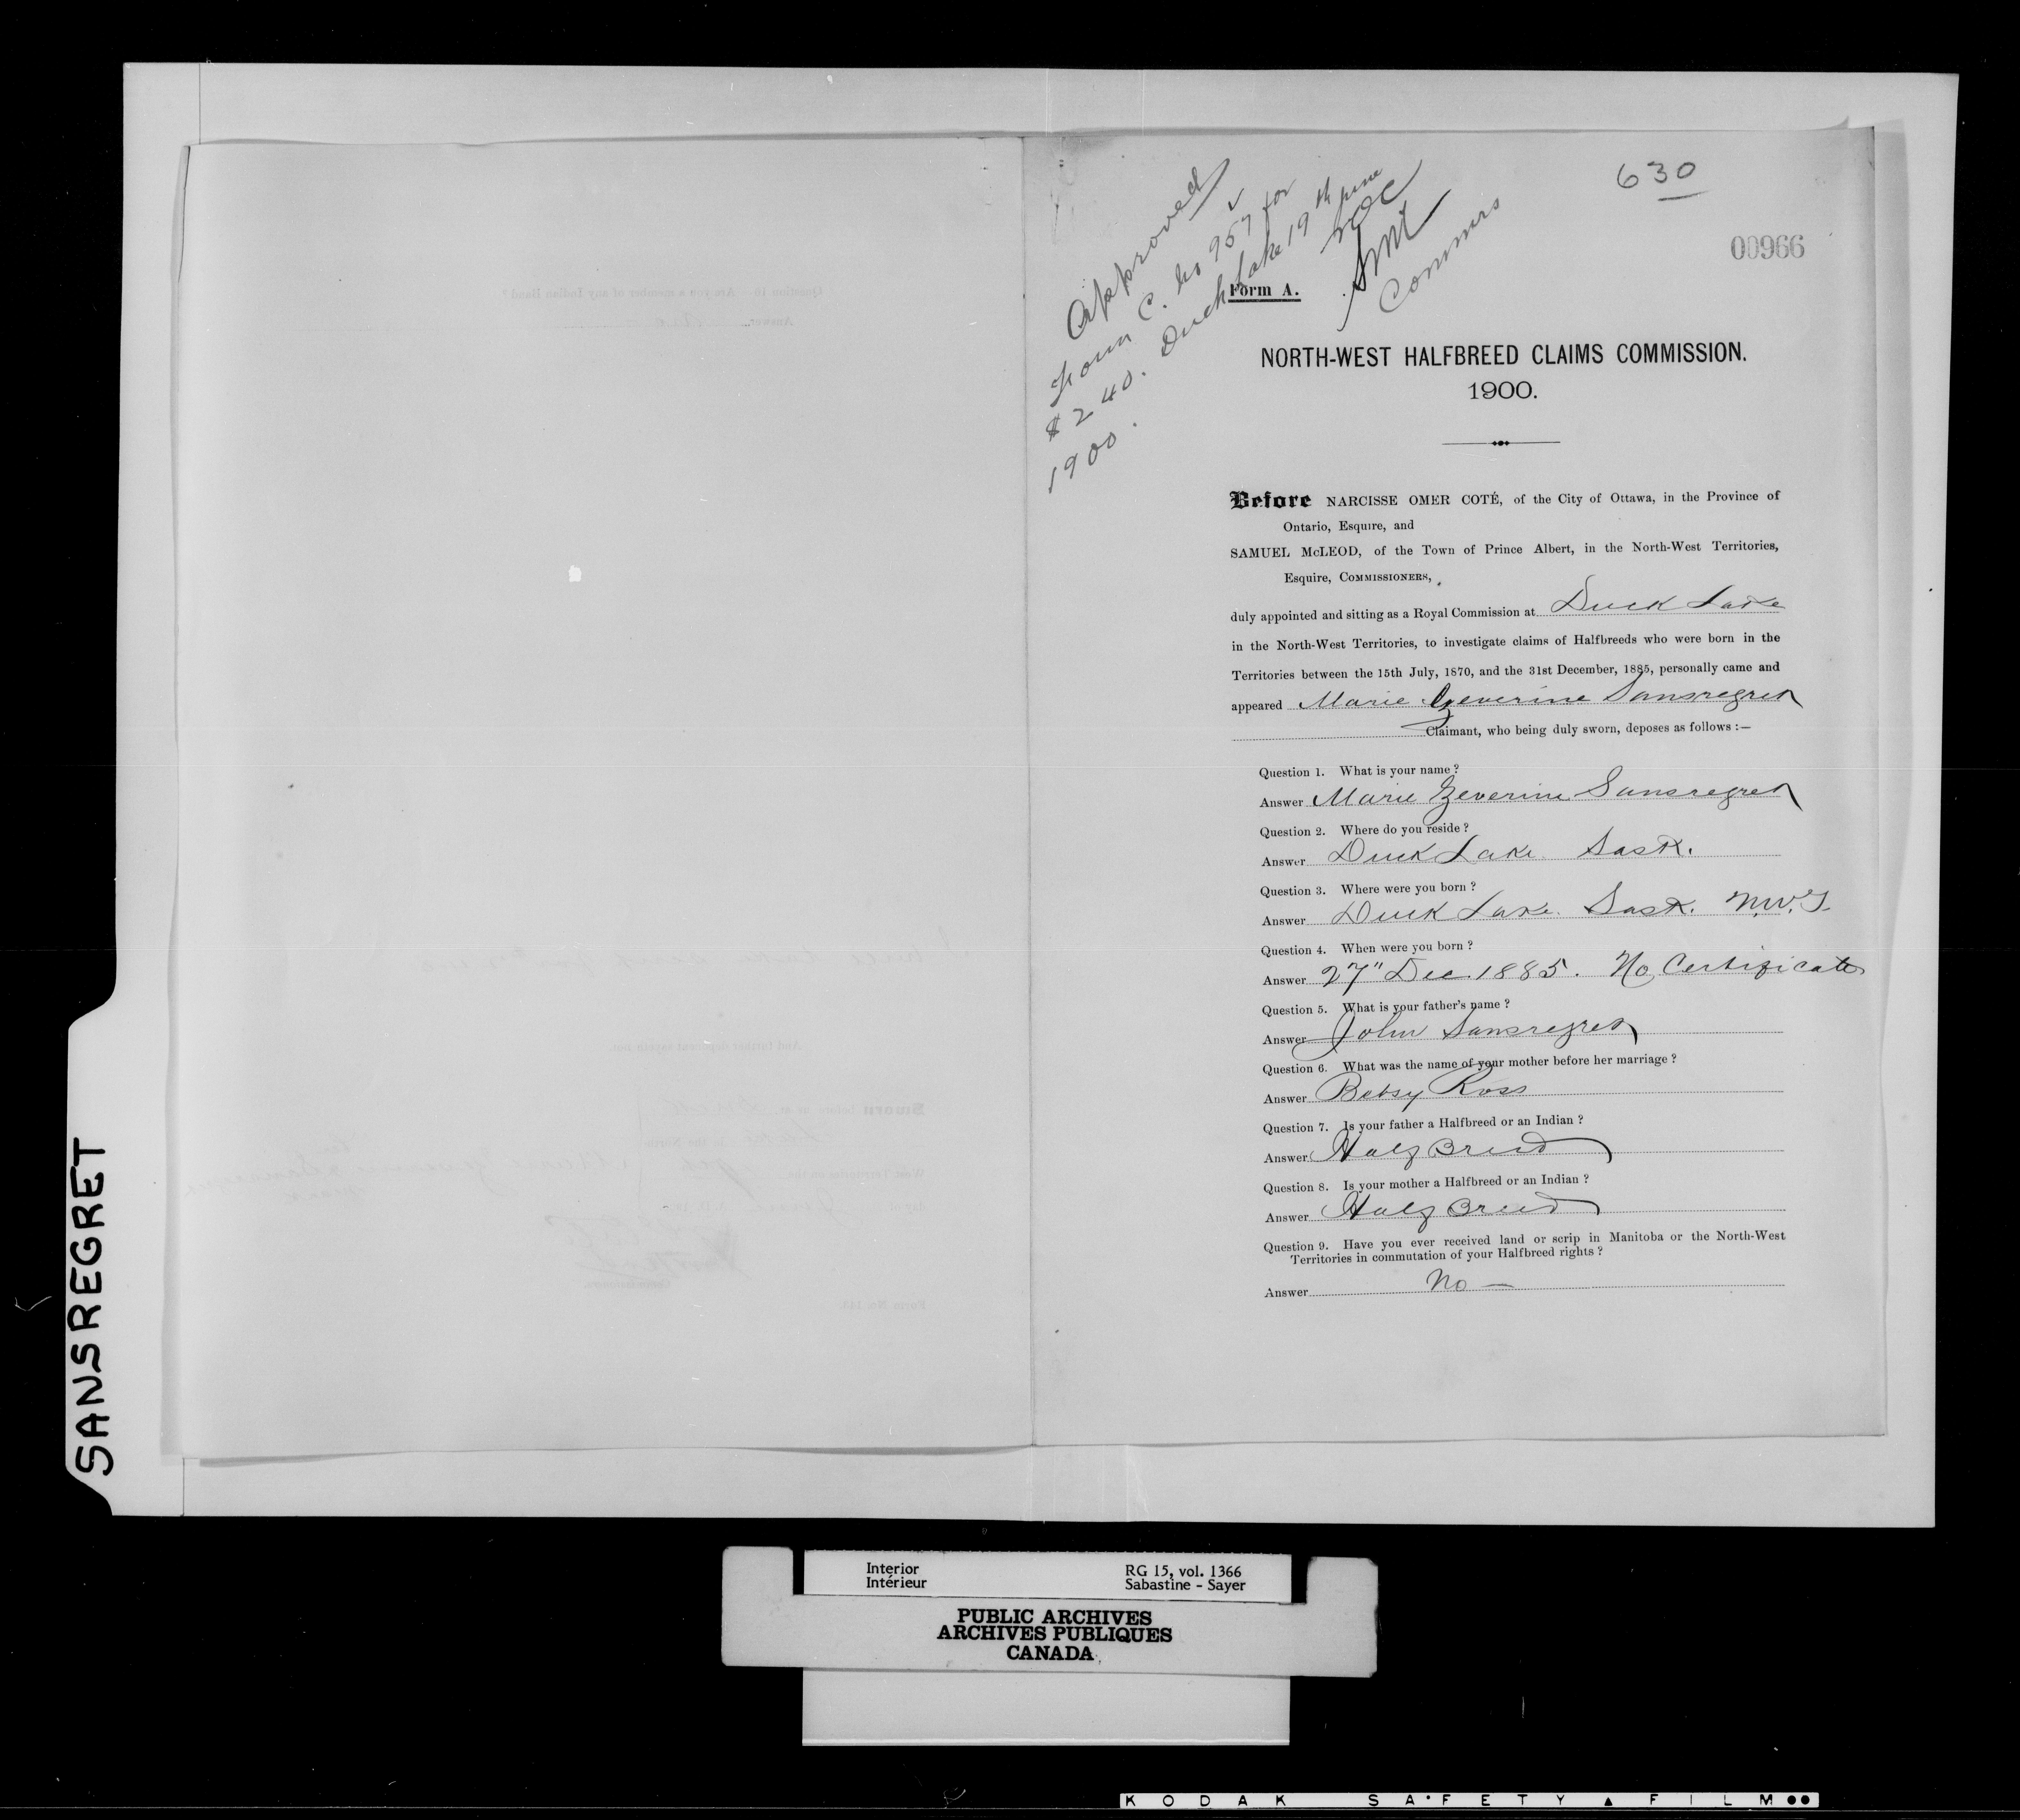 630
00966
Approved
Form C. No 957 for
$240. Duck Lake 19th June
1900.
NOC
SMc
Commrs
Form A.
NORTH-WEST HALFBREED CLAIMS COMMISSION.
1900.
Before NARCISSE OMER COTÉ, of the City of Ottawa, in the Province of
Ontario, Esquire, and
SAMUEL McLEOD, of the Town of Prince Albert, in the North-West Territories,
Esquire, COMMISSIONERS,
duly appointed and sitting as a Royal Commission at Duck Lake
in the North-West Territories, to investigate claims of Halfbreeds who were born in the
Territories between the 15th July, 1870, and the 31st December, 1885, personally came and
appeared Marie Zeverine Sansregret
Claimant, who being duly sworn, deposes as follows :—
Question 1. What is your name ?
Answer Marie Zeverine Sansregret
Question 2. Where do you reside ?
Answer Duck Lake Sask.
Question 3. Where were you born ?
Answer Duck Lake. Sask. N.W.T.
Question 4. When were you born ?
Answer 27" Dec 1885. No Certificate
Question 5. What is your father's name ?
Answer John Sansregret
Question 6. What was the name of your mother before her marriage ?
Answer Betsy Ross
Question 7. Is your father a Halfbreed or an Indian ?
Answer Half Breed
Question 8. Is your mother a Halfbreed or an Indian ?
Answer Half Breed
Question 9. Have you ever received land or scrip in Manitoba or the North-West
Territories in commutation of your Halfbreed rights ?
Answer No —
SANSREGRET
Interior
Intérieur
RG 15, vol. 1366
Sabastine - Sayer
PUBLIC ARCHIVES
ARCHIVES PUBLIQUES
CANADA
KODAK SAFETY FILM